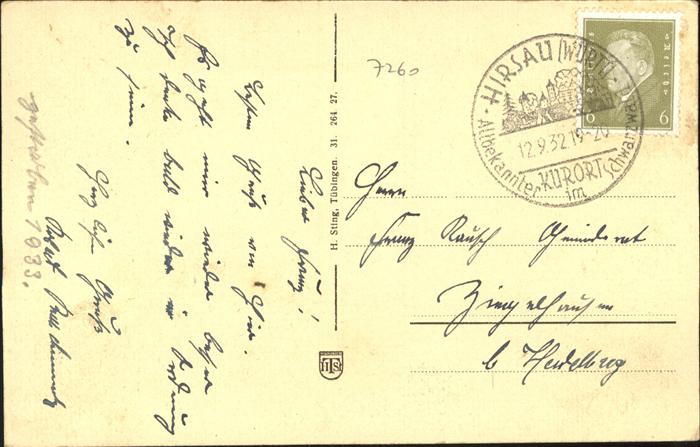 Lieber Franz!
Besten Gruß von hier.
Es geht mir wieder besser
ich denke bald wieder in Ordnung
zu sein.
Herzliche Grüße
gestorben 1933.
H. Sting, Tübingen. 31 264 27.
7260
HIRSAU (WÜRTT.)
12.9.32.19-20
Altbekannter KURORT im Schwarzwald
6 6
Herrn
Franz Rausch Gemeinderat
Ziegelhausen
b Heidelberg
HTS